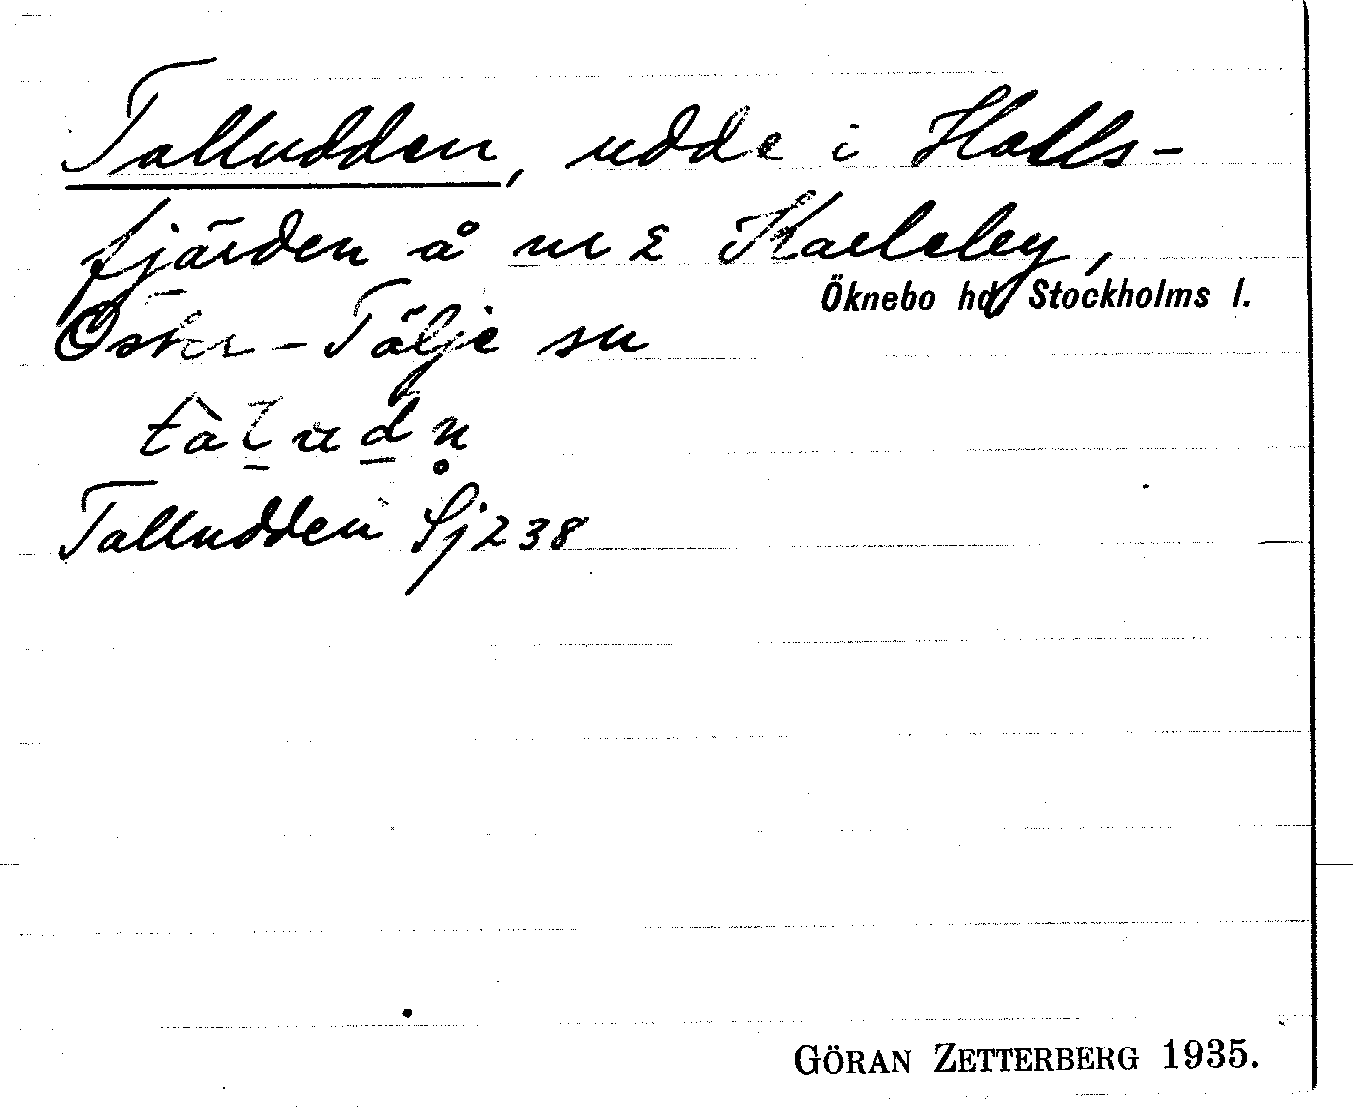 Talludden, udde i Halls-
fjärden å nr 2 Kaeleby,
Öknebo hd Stockholms l.
Öster-Tälje sn
Talludden Sj 238
GÖRAN ZETTERBERG 1935.